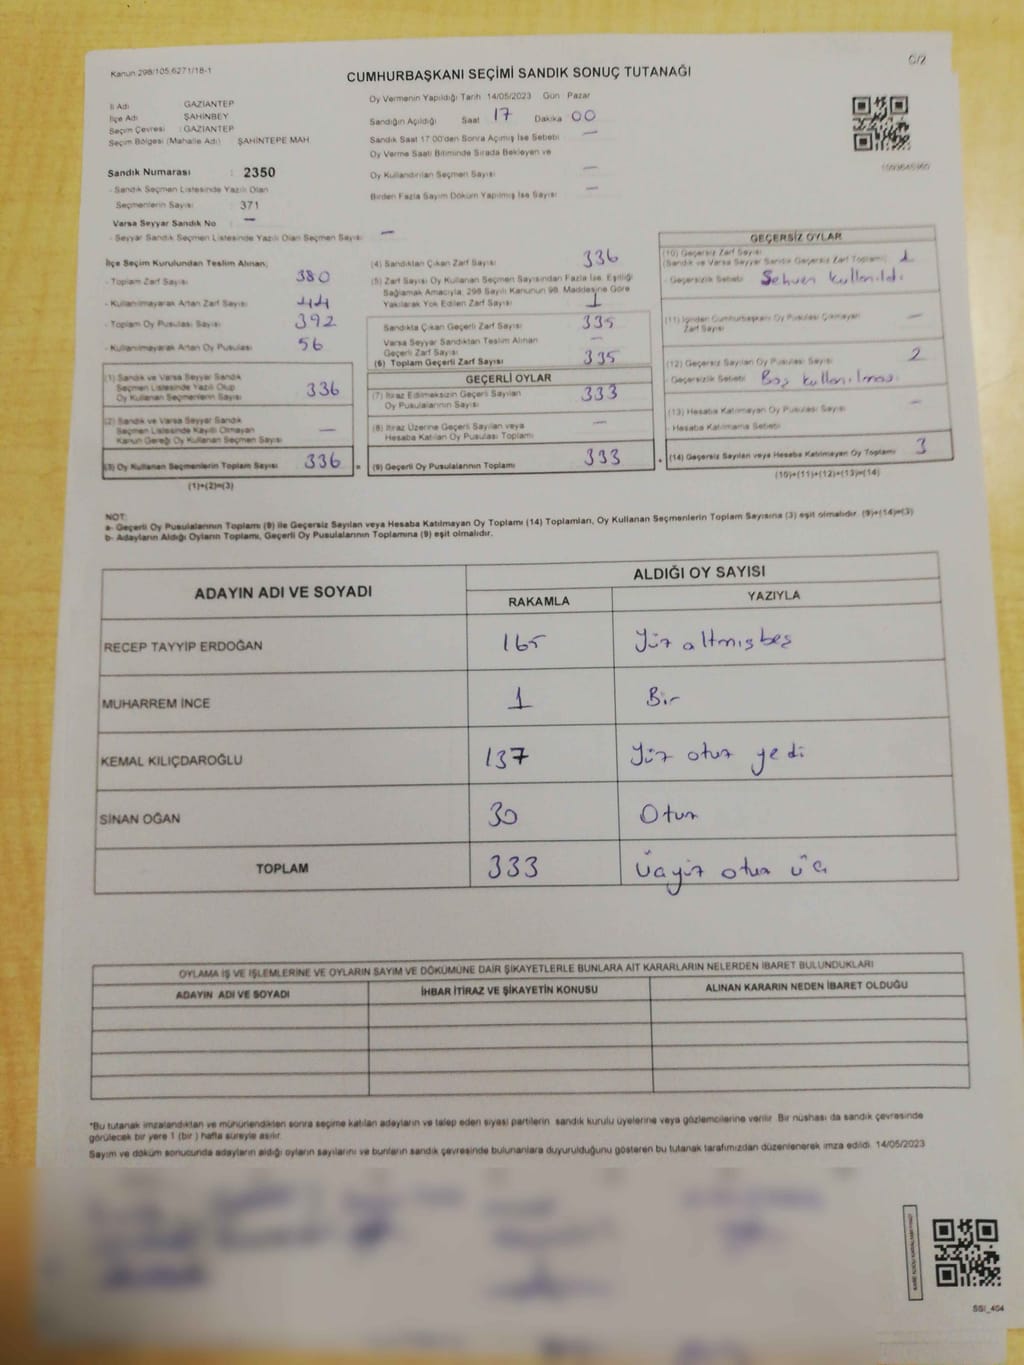 Kanun 298/105,6271/18-1
C/2
CUMHURBAŞKANI SEÇİMİ SANDIK SONUÇ TUTANAĞI
İl Adı GAZİANTEP
İlçe Adı ŞAHİNBEY
Seçim Çevresi : GAZİANTEP
Seçim Bölgesi (Mahalle Adı) ŞAHİNTEPE MAH
Sandık Numarası : 2350
- Sandık Seçmen Listesinde Yazılı Olan
Seçmenlerin Sayısı : 371
Varsa Seyyar Sandık No : —
- Seyyar Sandık Seçmen Listesinde Yazılı Olan Seçmen Sayısı —
Oy Vermenin Yapıldığı Tarih 14/05/2023 Gün Pazar
Sandığın Açıldığı Saat 17 Dakika 00
Sandık Saat 17:00'den Sonra Açılmış İse Sebebi —
Oy Verme Saati Bitiminde Sırada Bekleyen ve
Oy Kullandırılan Seçmen Sayısı —
Birden Fazla Sayım Döküm Yapılmış İse Sayısı —
İlçe Seçim Kurulundan Teslim Alınan;
- Toplam Zarf Sayısı 380
- Kullanılmayarak Artan Zarf Sayısı 44
- Toplam Oy Pusulası Sayısı 392
- Kullanılmayarak Artan Oy Pusulası 56
(1) Sandık ve Varsa Seyyar Sandık
Seçmen Listesinde Yazılı Olup
Oy Kullanan Seçmenlerin Sayısı 336
(2) Sandık ve Varsa Seyyar Sandık
Seçmen Listesinde Kayıtlı Olmayan
Kanun Gereği Oy Kullanan Seçmen Sayısı —
(3) Oy Kullanan Seçmenlerin Toplam Sayısı 336
(1)+(2)=(3)
(4) Sandıktan Çıkan Zarf Sayısı 336
(5) Zarf Sayısı Oy Kullanan Seçmen Sayısından Fazla İse, Eşitliği
Sağlamak Amacıyla, 298 Sayılı Kanunun 98. Maddesine Göre
Yakılarak Yok Edilen Zarf Sayısı 1
Sandıkta Çıkan Geçerli Zarf Sayısı 335
Varsa Seyyar Sandıktan Teslim Alınan
Geçerli Zarf Sayısı —
(6) Toplam Geçerli Zarf Sayısı 335
GEÇERLİ OYLAR
(7) İtiraz Edilmeksizin Geçerli Sayılan
Oy Pusulalarının Sayısı 333
(8) İtiraz Üzerine Geçerli Sayılan veya
Hesaba Katılan Oy Pusulası Toplamı —
(9) Geçerli Oy Pusulalarının Toplamı 333
GEÇERSİZ OYLAR
(10) Geçersiz Zarf Sayısı
(Sandık ve Varsa Seyyar Sandık Geçersiz Zarf Toplamı) 1
- Geçersizlik Sebebi Sehven kullanıldı.
(11) İçinden Cumhurbaşkanı Oy Pusulası Çıkmayan
Zarf Sayısı —
(12) Geçersiz Sayılan Oy Pusulası Sayısı 2
Geçersizlik Sebebi Boş kullanılması
(13) Hesaba Katılmayan Oy Pusulası Sayısı —
- Hesaba Katılmama Sebebi
(14) Geçersiz Sayılan veya Hesaba Katılmayan Oy Toplamı 3
(10)+(11)+(12)+(13)=(14)
NOT:
a- Geçerli Oy Pusulalarının Toplamı (9) ile Geçersiz Sayılan veya Hesaba Katılmayan Oy Toplamı (14) Toplamları, Oy Kullanan Seçmenlerin Toplam Sayısına (3) eşit olmalıdır. (9)+(14)=(3)
b- Adayların Aldığı Oyların Toplamı, Geçerli Oy Pusulalarının Toplamına (9) eşit olmalıdır.
ADAYIN ADI VE SOYADI ALDIĞI OY SAYISI
RAKAMLA YAZIYLA
RECEP TAYYİP ERDOĞAN 165 Yüz altmışbeş
MUHARREM İNCE 1 Bir
KEMAL KILIÇDAROĞLU 137 Yüz otuz yedi
SİNAN OĞAN 30 Otuz
TOPLAM 333 Üçyüz otuz üç
OYLAMA İŞ VE İŞLEMLERİNE VE OYLARIN SAYIM VE DÖKÜMÜNE DAİR ŞİKAYETLERLE BUNLARA AİT KARARLARIN NELERDEN İBARET BULUNDUKLARI
ADAYIN ADI VE SOYADI İHBAR İTİRAZ VE ŞİKAYETİN KONUSU ALINAN KARARIN NEDEN İBARET OLDUĞU
*Bu tutanak imzalandıktan ve mühürlendikten sonra seçime katılan adayların ve talep eden siyasi partilerin sandık kurulu üyelerine veya gözlemcilerine verilir. Bir nüshası da sandık çevresinde
görülecek bir yere 1 (bir ) hafta süreyle asılır.
Sayım ve döküm sonucunda adayların aldığı oyların sayılarını ve bunların sandık çevresinde bulunanlara duyurulduğunu gösteren bu tutanak tarafımızdan düzenlenerek imza edildi. 14/05/2023
SGI_404